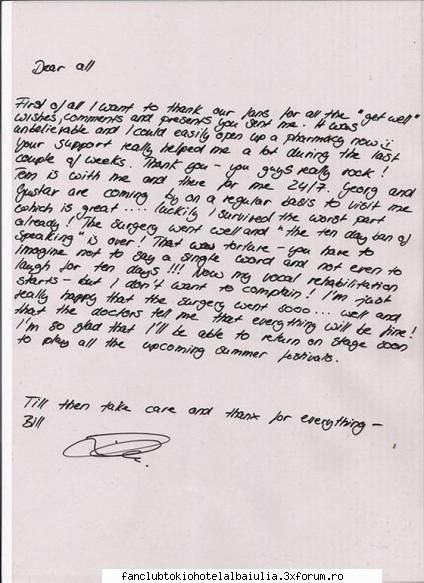 Dear all
First of all I want to thank our fans for all the "get well"
wishes, comments and presents you sent me. It was
unbelievable and I could easily open up a pharmacy now :)
Your support really helped me a lot during the last
couple of weeks. Thank you - you guys really rock!
Tom is with me and there for me 24/7. Georg and
Gustav are coming by on a regular basis to visit me
which is great .... luckily I survived the worst part
already! The surgery went well and "the ten day ban of
speaking" is over! That was torture - you have to
imagine not to say a single word and not even to
laugh for ten days!!! Now my vocal rehabilitation
starts - but I don't want to complain! I'm just
really happy that the surgery went sooo... well and
that the doctors tell me that everything will be fine!
I'm so glad that I'll be able to return on stage soon
to play all the upcoming summer festivals.
Till then take care and thanx for everything -
Bill
fanclubtokiohotelalbaiulia.3xforum.ro